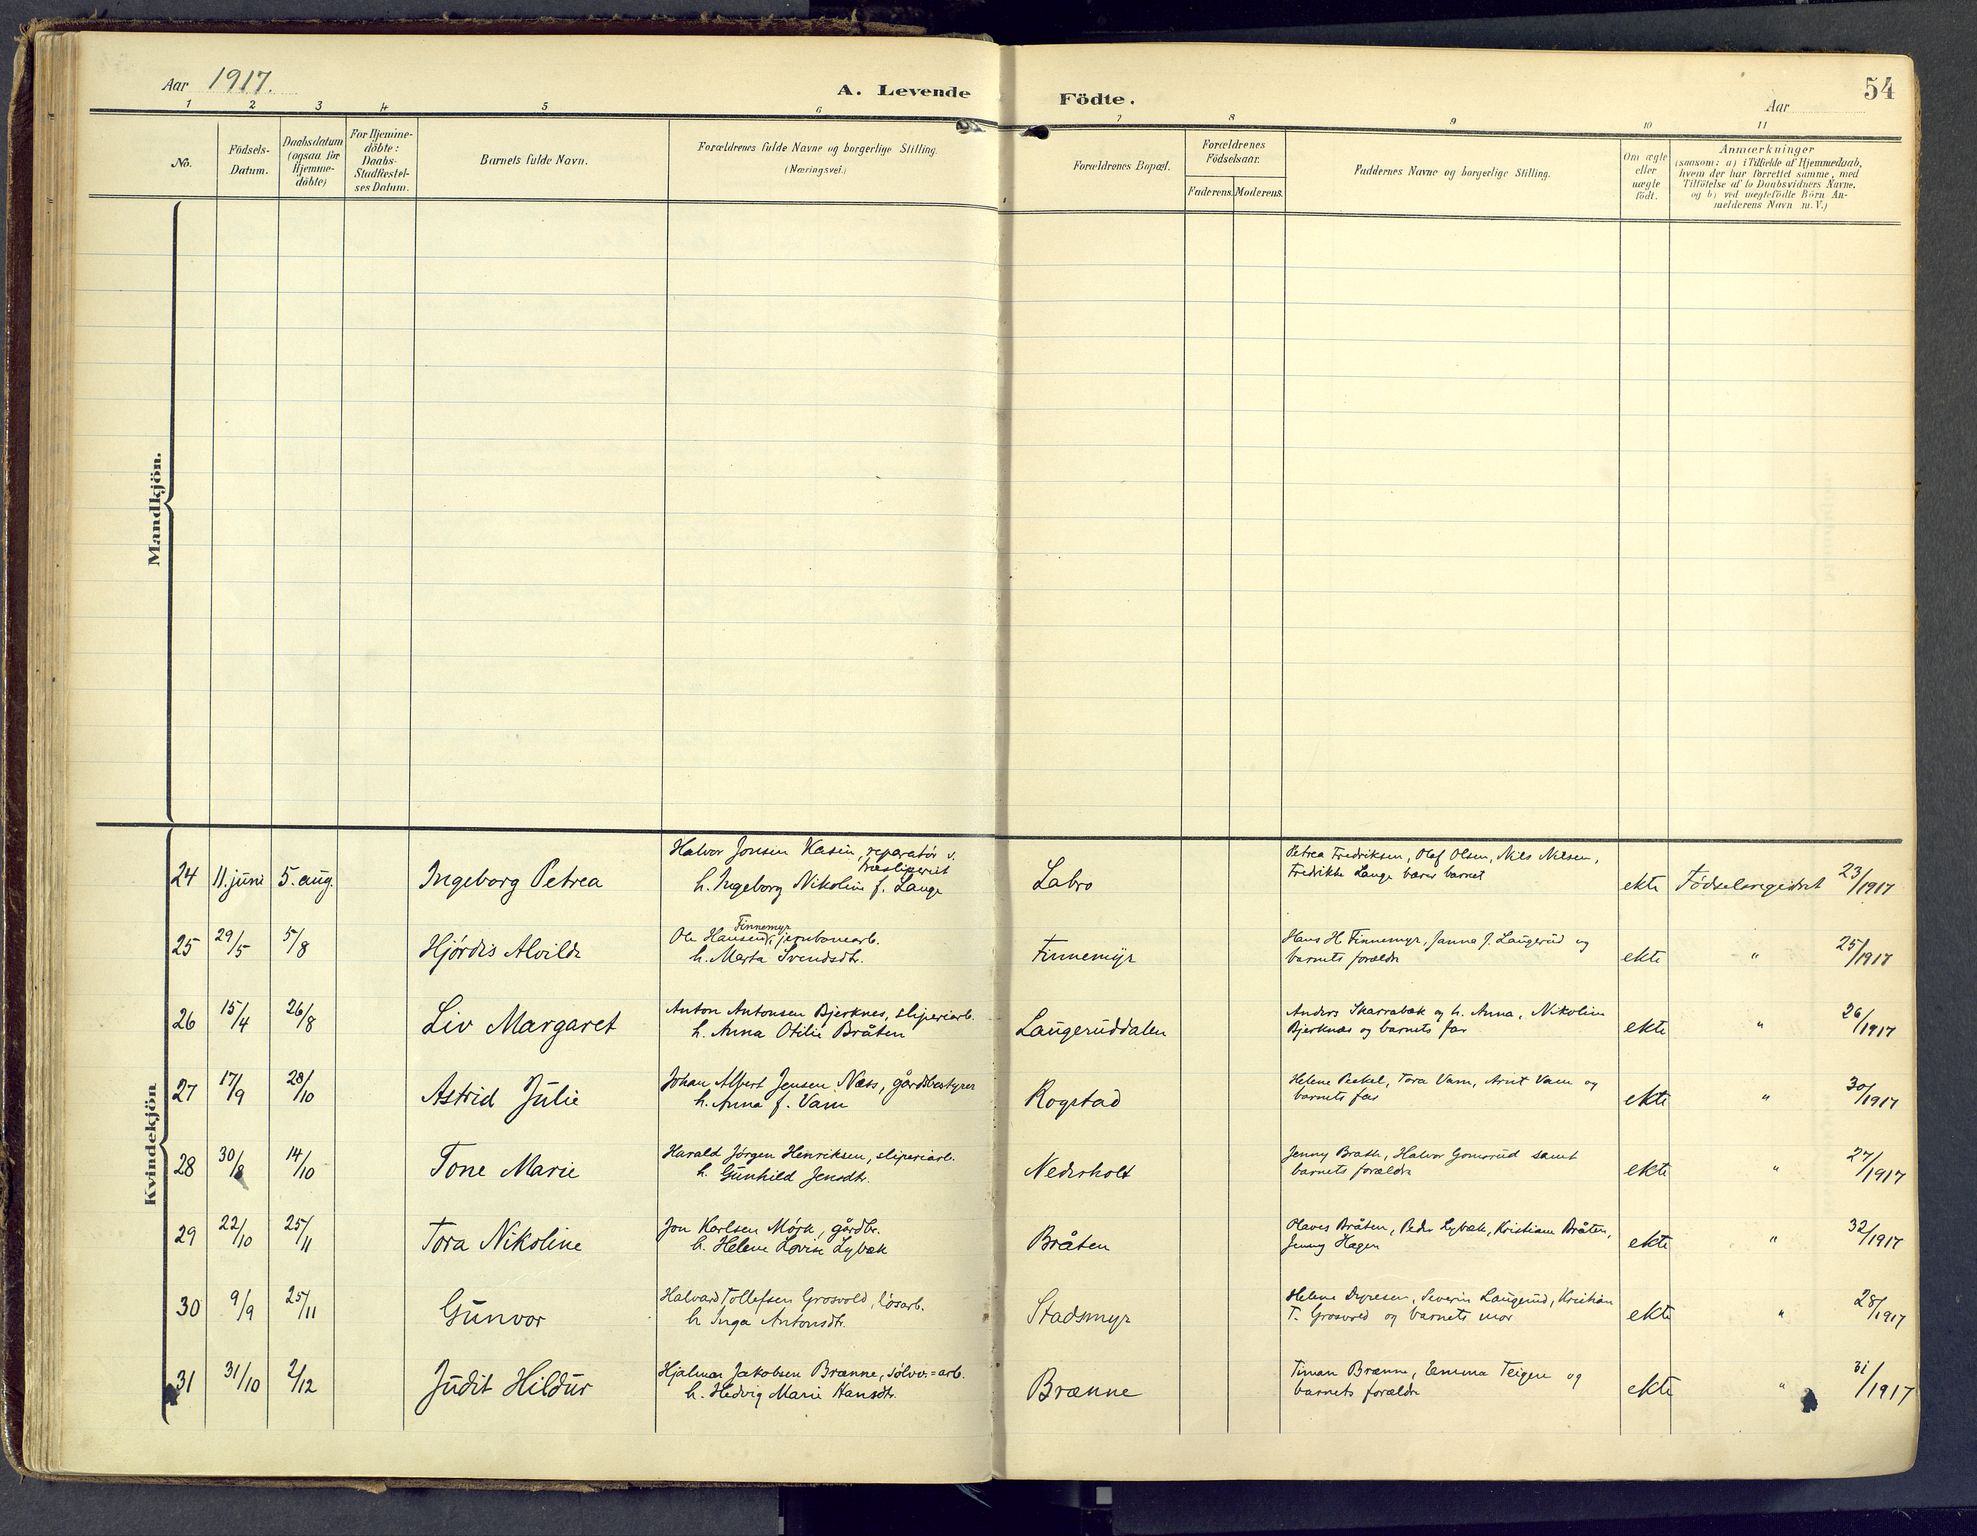 Aar 1917.
A. Levende Födte.
Aar
54
1 2 3 4 5 6 7 8 9 10 11
No.
Födsels-
Datum.
Daabsdatum
(ogsaa for
Hjemme-
döbte)
For Hjemme-
döbte:
Daabs-
Stadfæstel-
ses Datum.
Barnets fulde Navn.
Forældrenes fulde Navne og borgerlige Stilling.
(Næringsvei.)
Forældrenes Bopæl.
Forældrenes
Födselsaar.
Faderens. Moderens.
Faddernes Navne og borgerlige Stilling.
Om ægte
eller
uægte
födt.
Anmærkninger
(saasom: a) i Tilfælde af Hjemmedaab,
hvem der har forrettet samme, med
Tilföielse af to Daabsvidners Navne.
og b) ved uægtefödte Börn An-
melderens Navn m. V.)
Mandkjön.
Kvindekjön
24 11. juni 5. aug. Ingeborg Petrea
Halvor Jonsen Kasin, reparatör v.
Træsliperiet
h. Ingeborg Nikoline f. Lange
Labro
Petrea Fredriksen, Olaf Olsen, Nils Nilsen,
Fredrikke Lange bærer barnet
ekte Födselsregistret 23/1917
25 29/5 5/8 Hjördis Alvilde
Finnemyr
Ole Hansen, jernbanearb.
h. Marta Svendsdtr.
Finnemyr
Hans H. Finnemyr, Janna J. Laugerud og
barnets foreldre
ekte " 25/1917
26 15/4 26/8 Liv Margaret
Anton Antonsen Bjerknes, sliperiarb.
h. Anna Otilie Bråten
Laugeruddalen
Anders Skarrabæk og h. Anna, Nikoline
Bjerknæs og barnets far
ekte " 26/1917
27 17/9 28/10 Astrid Julie
Johan Albert Jensen Næss, gårdsbestyrer
h. Anna f. Vam
Rogstad
Helene Peckel, Tora Vam, Arnt Vam og
barnets far
ekte " 30/1917
28 30/8 14/10 Tone Marie
Harald Jörgen Henriksen, sliperiarb.
h. Gunhild Jensdtr.
Nederholt
Jenny Brath, Halvor Gomsrud samt
barnets foreldre
ekte " 27/1917
29 22/10 25/11 Tora Nikoline
Jon Karlsen Mörk, gårdbr.
h. Helene Lovise Lybæk
Bråten
Olaves Bråten, Peder Lybæk, Kristiane Bråten,
Jenny Hagen
ekte " 32/1917
30 9/9 25/11 Gunvor
Halvard Tollefsen Grosvold, lösarb.
h Inga Antonsdtr.
Stadsmyr
Helene Dyresen, Severin Laugerud, Kristian
T. Grosvold og barnets mor
ekte " 28/1917
31 31/10 2/12 Judit Hildur
Hjalmar Jakobsen Brænne, sölvv.=arb.
h. Hedvig Marie Hansdtr.
Brænne
Timan Brænne, Emma Teigen og
barnets foreldre
ekte " 31/1917